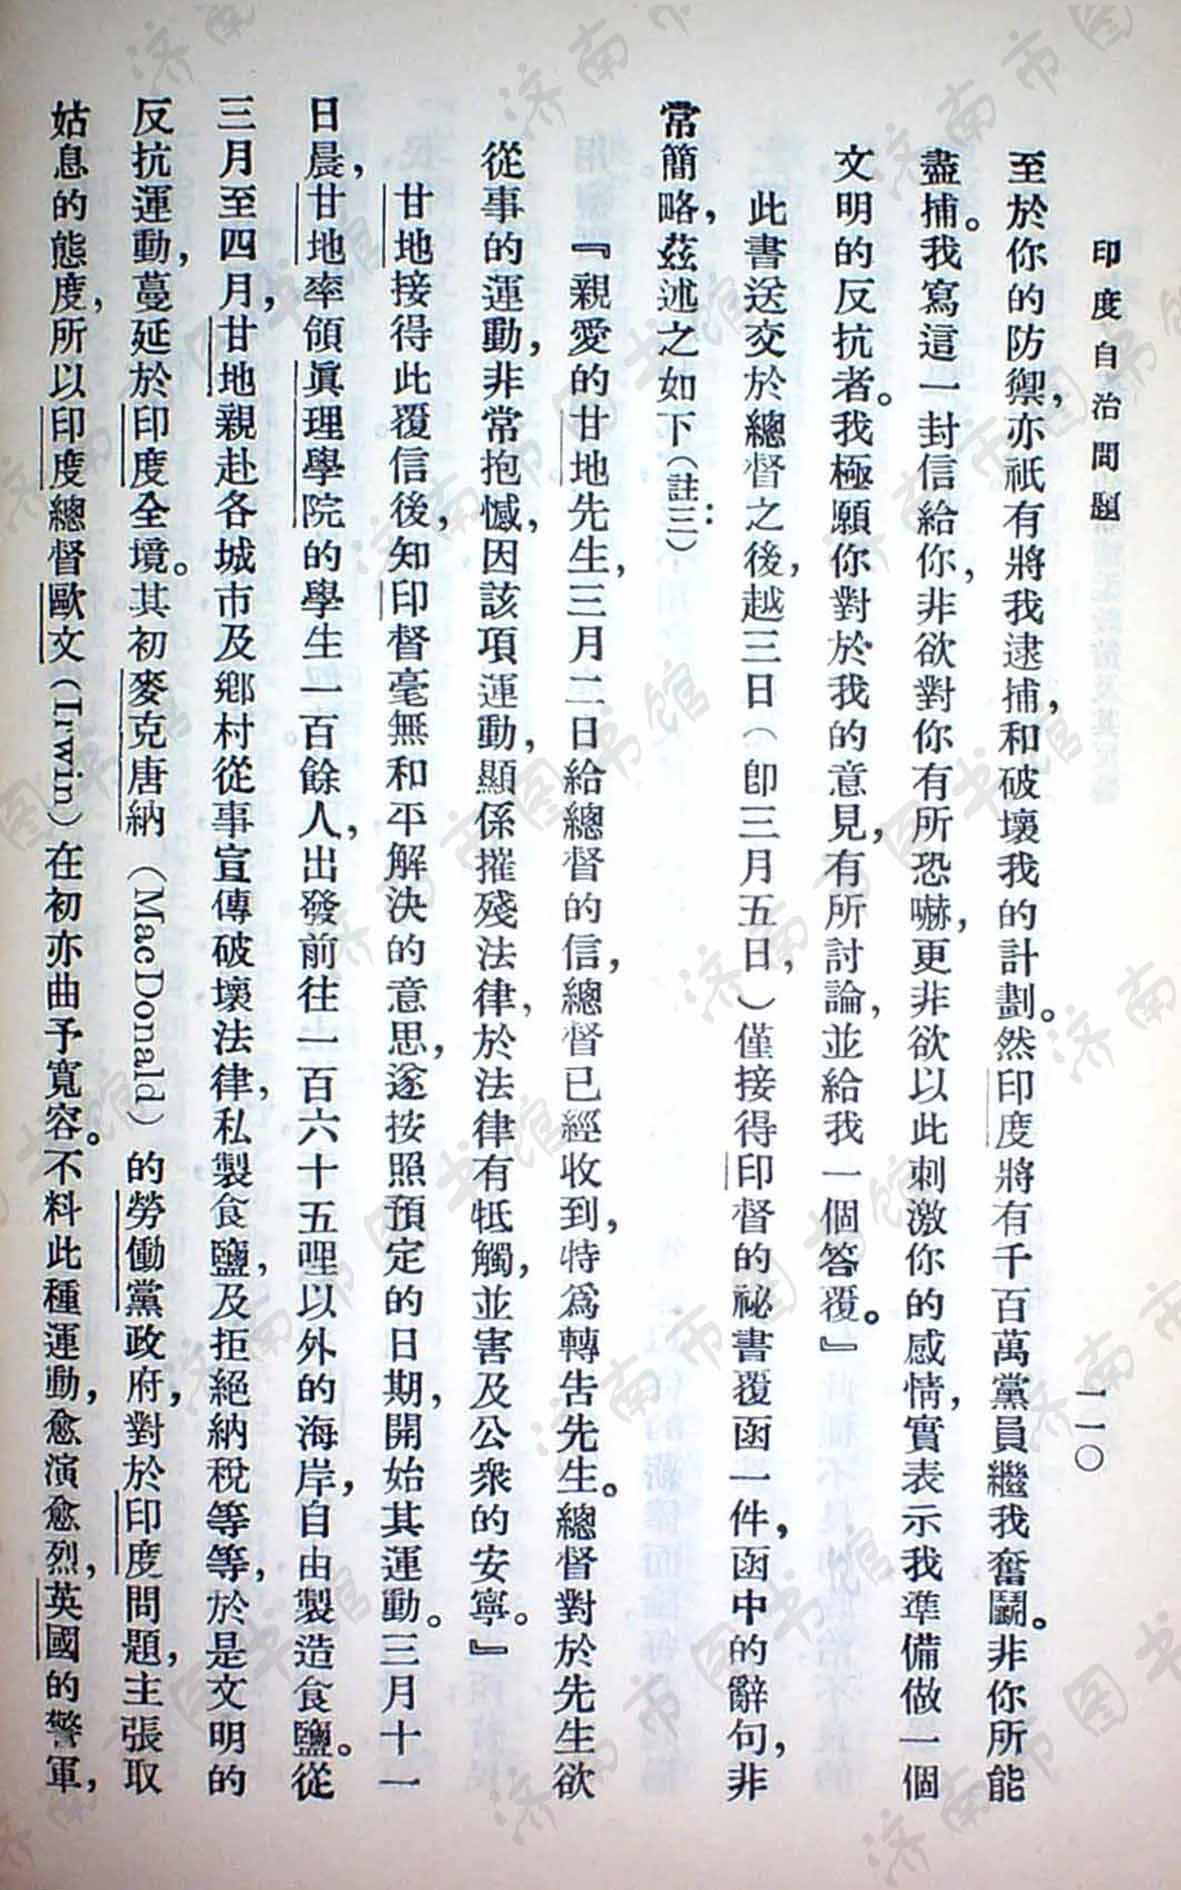 印度自治問題
一一〇
至於你的防禦，亦祇有將我逮捕，和破壞我的計劃。然印度將有千百萬黨員繼我奮鬭。非你所能
盡捕。我寫這一封信給你，非欲對你有所恐嚇，更非欲以此刺激你的感情，實表示我準備做一個
文明的反抗者。我極願你對於我的意見，有所討論，並給我一個答覆。』
此書送交於總督之後，越三日（卽三月五日，）僅接得印督的祕書覆函一件，函中的辭句，非
常簡略，茲述之如下（註三：）
『親愛的甘地先生，三月二日給總督的信，總督已經收到，特爲轉告先生。總督對於先生欲
從事的運動，非常抱憾，因該項運動，顯係摧殘法律，於法律有牴觸，並害及公衆的安寧。』
甘地接得此覆信後，知印督毫無和平解決的意思，遂按照預定的日期，開始其運動。三月十一
日晨，甘地率領眞理學院的學生一百餘人，出發前往一百六十五哩以外的海岸，自由製造食鹽。從
三月至四月，甘地親赴各城市及鄉村從事宣傳破壞法律，私製食鹽，及拒絕納稅等等，於是文明的
反抗運動，蔓延於印度全境。其初麥克唐納（MacDonald）的勞働黨政府，對於印度問題，主張取
姑息的態度，所以印度總督歐文（Irwin）在初亦曲予寬容。不料此種運動，愈演愈烈，英國的警軍，
济南市图书馆